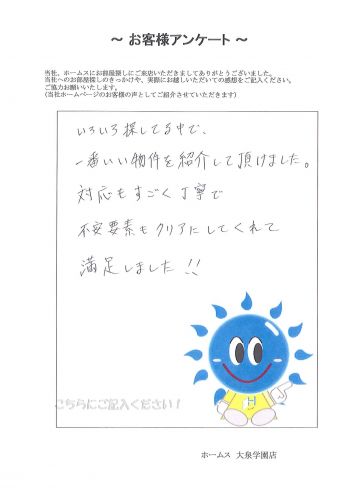 ～ お客様アンケート ～
当社、ホームスにお部屋探しにご来店いただきましてありがとうございました。
当社へのお部屋探しのきっかけや、実際にお越しいただいての感想をご記入ください。
ご協力お願いいたします。
(当社ホームページのお客様の声としてご紹介させていただきます)
いろいろ探してる中で、
一番いい物件を紹介して頂けました。
対応もすごく丁寧で
不安要素もクリアにしてくれて
満足しました!!
こちらにご記入ください！
ホームス 大泉学園店